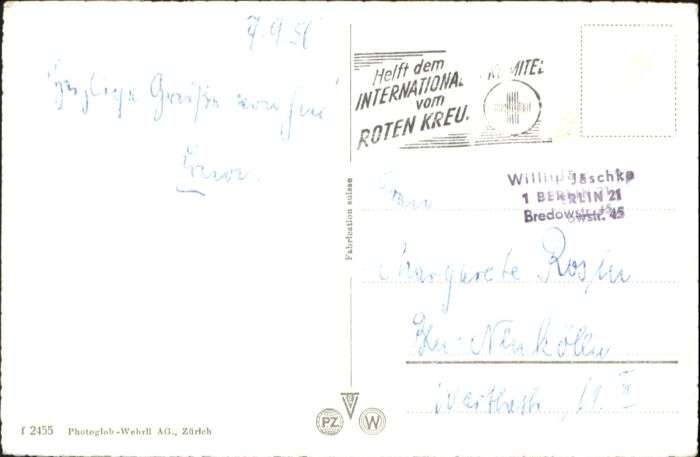 7.9.51
Herzliche Grüße von
Helft dem
INTERNATIONALEN KOMITEE
vom
ROTEN KREUZ
Willi Jäschke
1 BERLIN 21
Bredowstr. 45
Frau
Margarete
Bln-Neukölln
11 II
Fabrication suisse
PZ
W
f 2455 Photoglob-Wehrli AG., Zürich